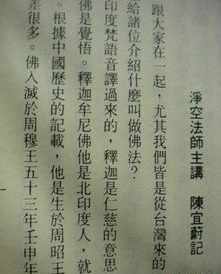 淨空法師主講　陳宜蔚記
跟大家在一起，尤其我們皆是從台灣來的
給諸位介紹什麼叫做佛法？
印度梵語音譯過來的，釋迦是仁慈的意思
佛是覺悟。釋迦牟尼佛他是北印度人，就
。根據中國歷史的記載，他是生於周昭王
差很多。佛入滅於周穆王五十三年壬申年